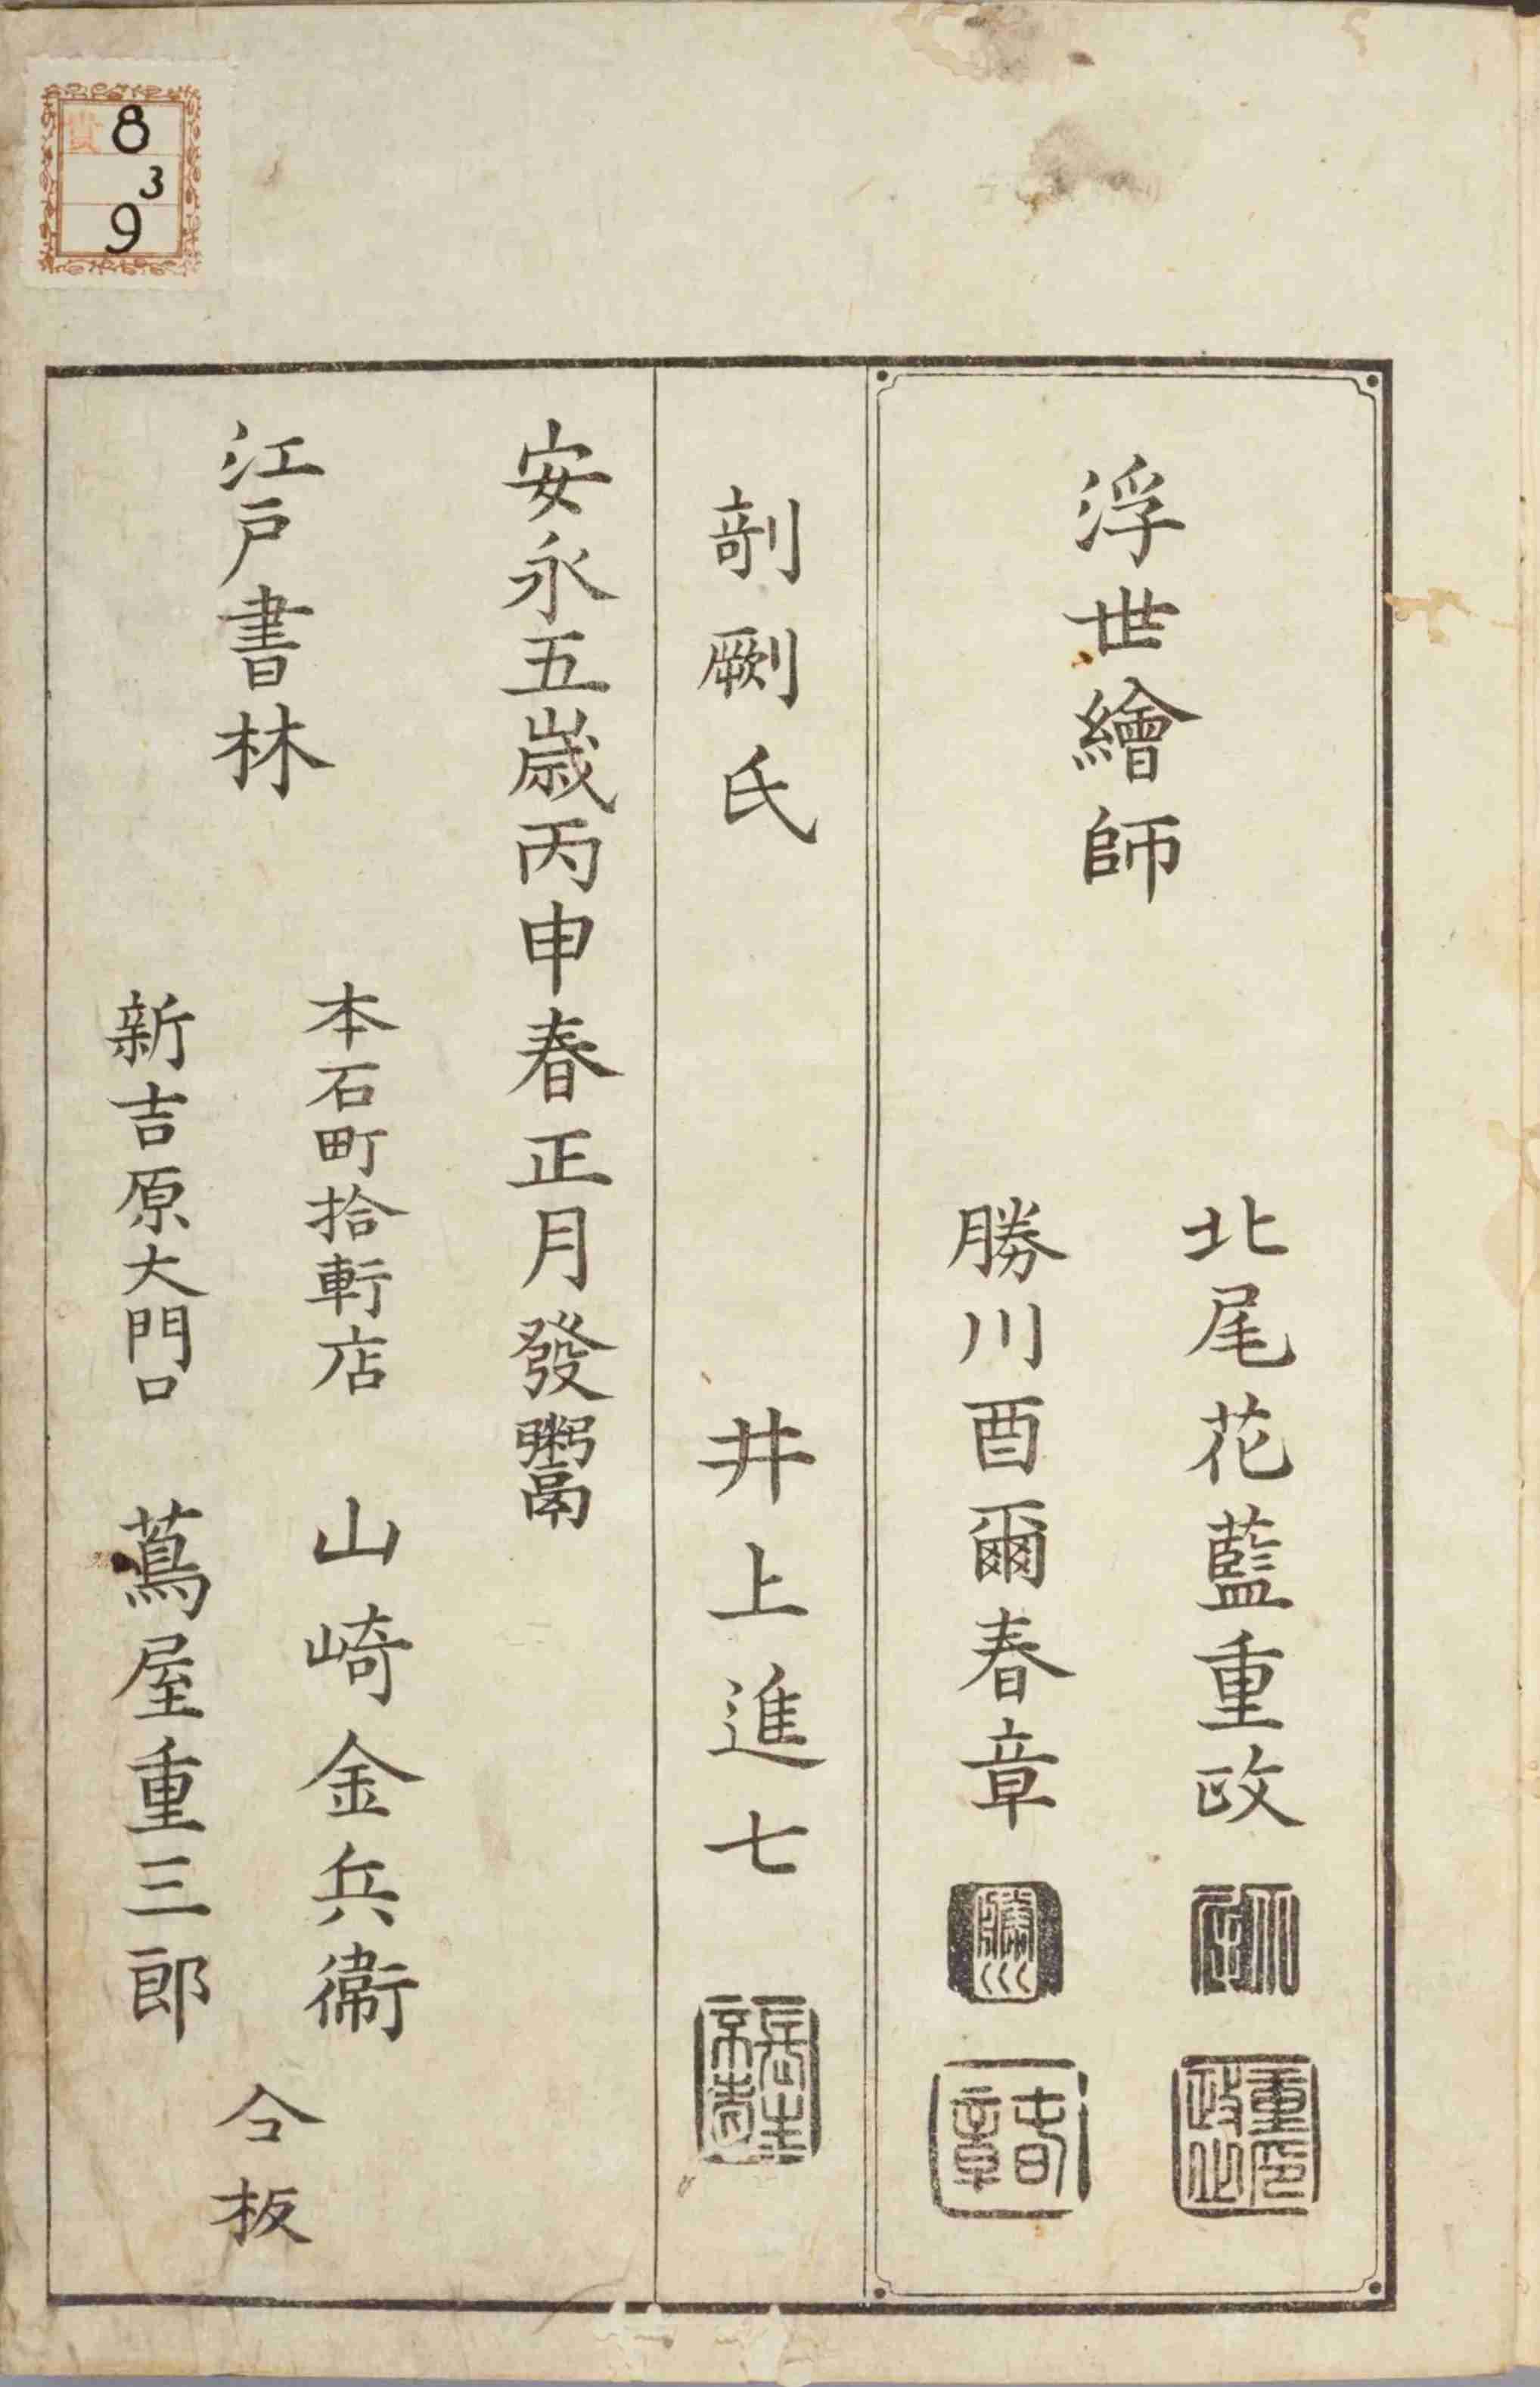 浮世繪師
北尾花藍重政
勝川酉爾春章
剞劂氏
井上進七
安永五歳丙申春正月發鬻
江戸書林
本石町拾軒店 山崎金兵衞
新吉原大門口 蔦屋重三郎
合板
貴 8
3
9
勝川
重政之印
春章